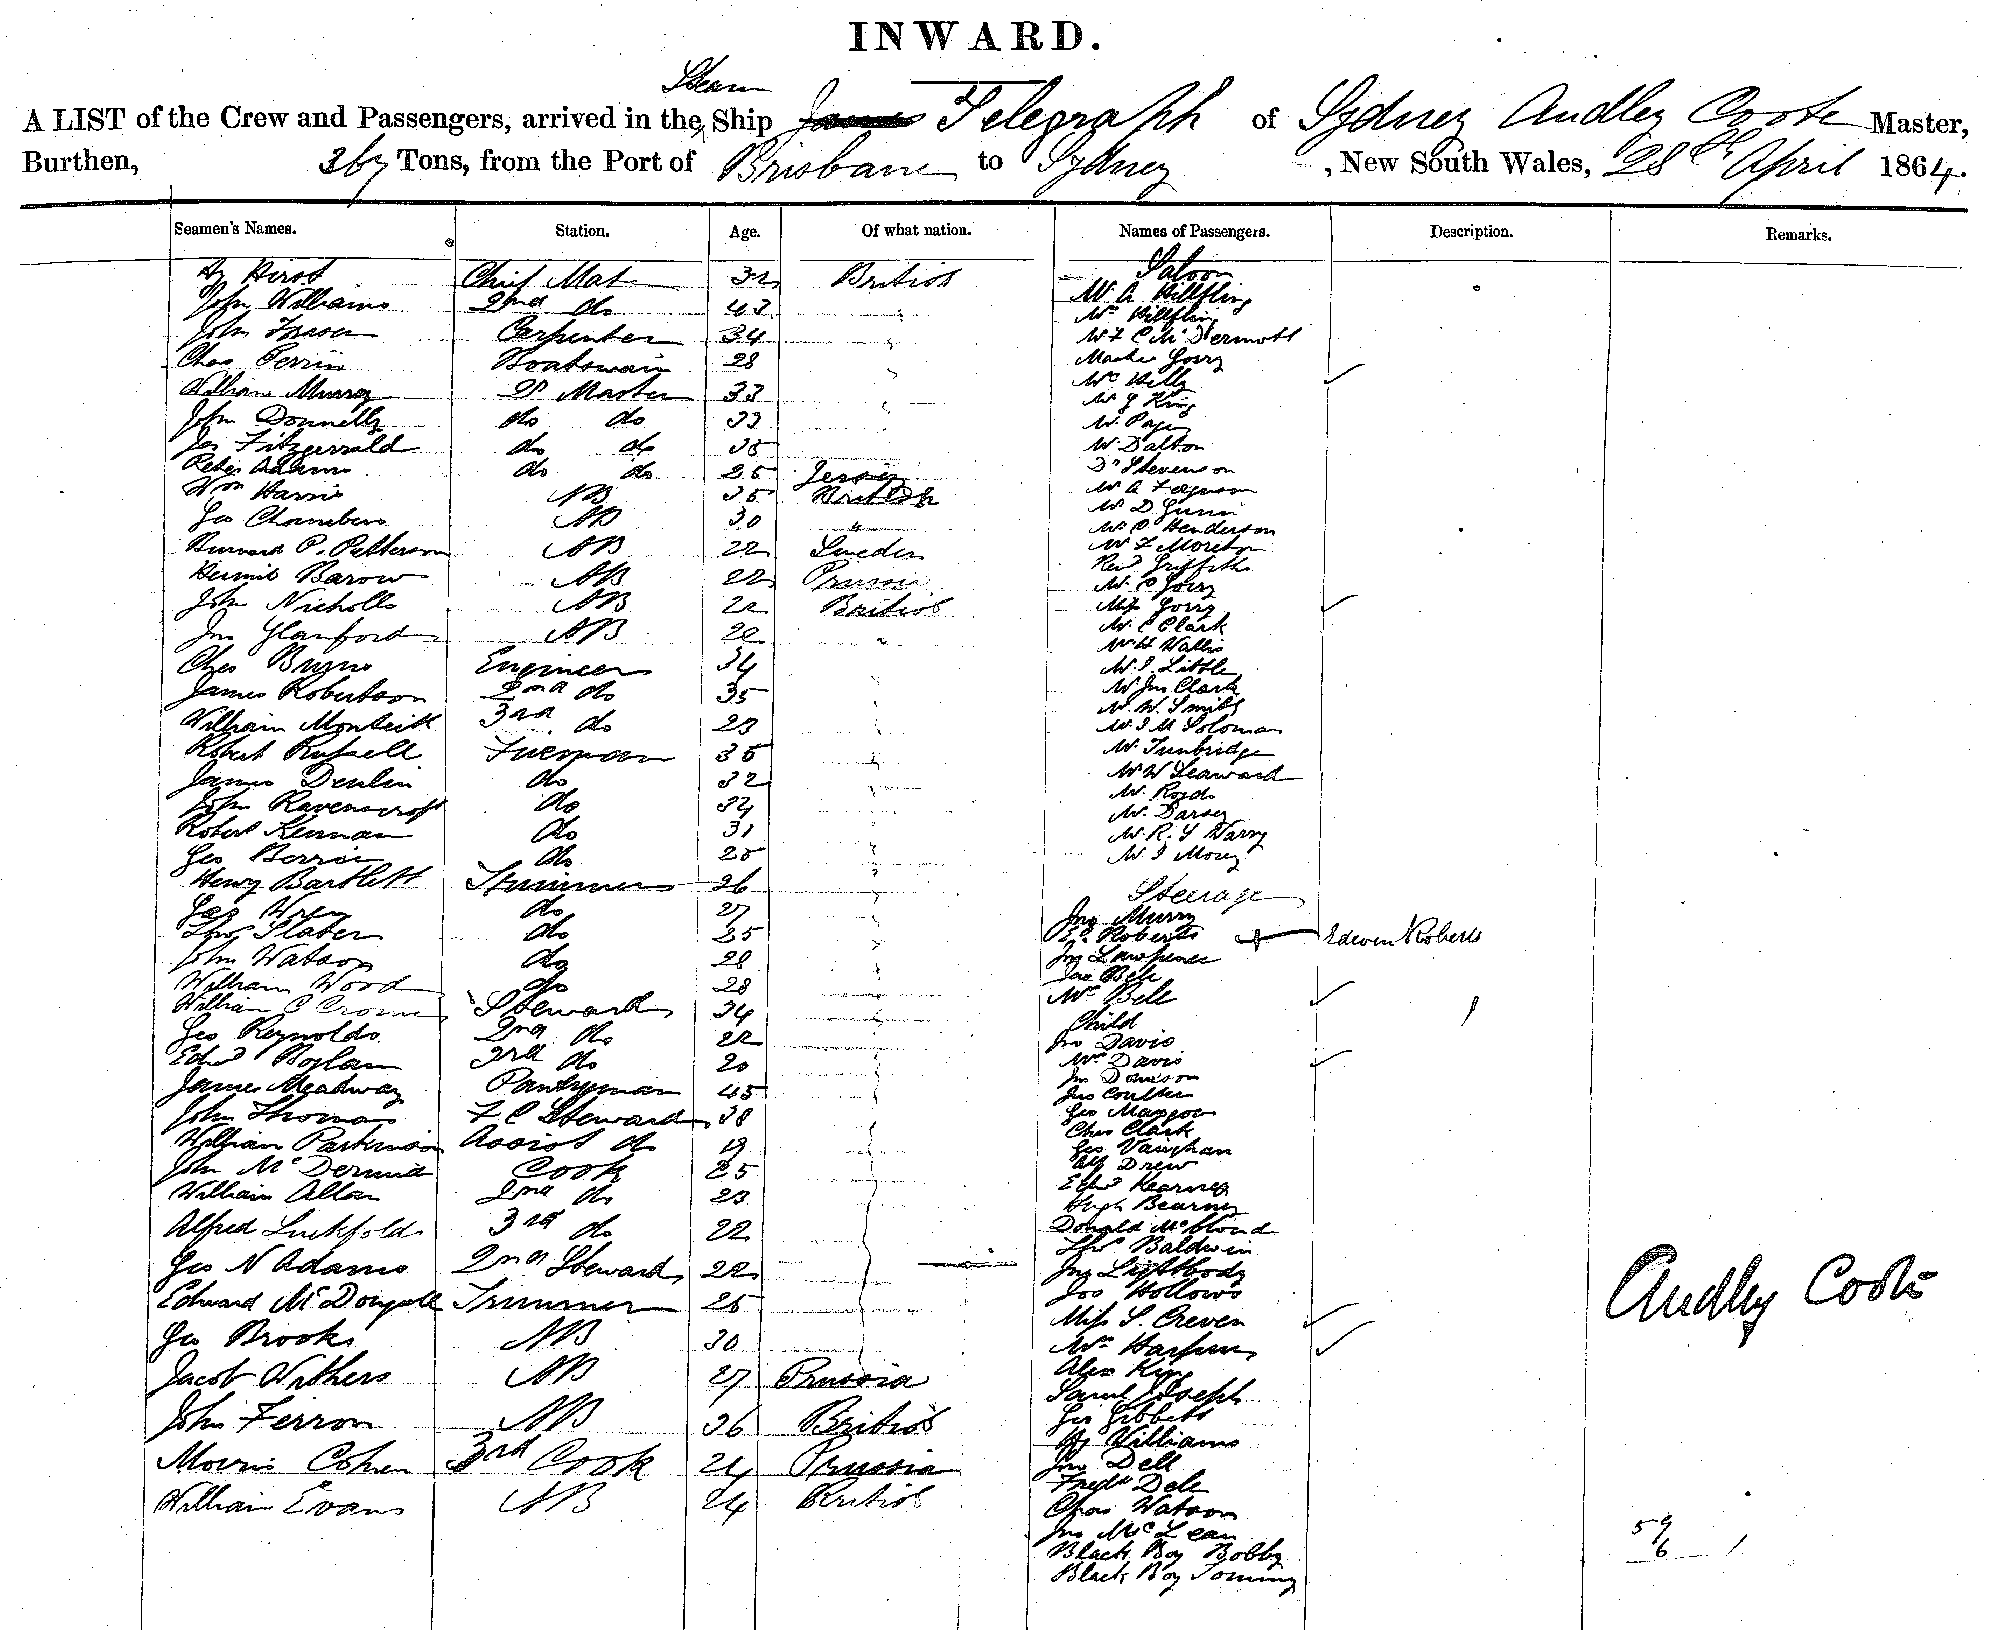 INWARD.
Steam
A LIST of the Crew and Passengers, arrived in the Ship Telegraph of Sydney Audley Coote Master,
Burthen, 367 Tons, from the Port of Brisbane to Sydney, New South Wales, 28th April 1864.
Seamen's Names. Station. Age. Of what nation. Names of Passengers. Description. Remarks.
Hy Hirst Chief Mate 32 British
John Williams 2nd do 43 "
John Carpenter 34 "
Chas Perrin Boatswain 28 "
William Murray Qr Master 33 "
John Donnelly do do 33
Jas Fitzgerrald do do 35
Peter Adams do do 25 Jersey
Wm Harris AB 35 British
Geo Chambers AB 30 "
P. Patterson AB 22 Sweden
Barow AB 22 Prussia
John Nicholls AB 22 British
Jno Glanford AB 22 "
Chas Burns Engineer 34 "
James Robertson 2nd do 35 "
William Monteith 3rd do 23 "
Robert Russell Fireman 35 "
James Devlin do 32 "
John Ravenscroft do 34 "
Robert Kernan do 31 "
Geo do 25 "
Henry Bartlett Trimmer 26 "
Geo do 27 "
Thos Slater do 25 "
John Watson do 28 "
William Wood do 28 "
William C Steward 34 "
Geo Reynolds 2nd do 22 "
Edwd Boylan 3rd do 20
James Meadway Pantryman 45
John Thomas F C Steward 38
William Parkinson Assist do 19
John McDermid Cook 25
William Allan 2nd do 23
Alfred Luckfold 3rd do 22
Geo N Adams 2nd Steward 22
Edward McDougall Trimmer 25
Geo Brooks AB 30
Jacob Withers AB 27 Prussia
John Ferron AB 36 British
Morris Cohen 3rd Cook 24 Prussia
William Evans AB 24 British
Saloon
Mr A Hillfling
Mrs Hillfling
Mr F C McDermott
Master Gorry
Mrs Kelly
Mr J King
Mr Page
Mr Dalton
Dr Stevenson
Mr A Ferguson
Mr D Gunn
Mr C Henderson
Mr F Moreton
Revd Griffiths
Mr C Gorry
Miss Gorry
Mr C Clark
Mr H Wallis
Mr J. Little
Mr Jno Clark
Mr W. Smith
Mr J M Soloman
Mr Tunbridge
Mr W Seaward
Mr Royds
Mr Darsey
Mr R. S Warry
Mr J Morey
Steerage
Jno Murry
Ed. Roberts Edwen Roberts
Jno Lawrence
Jas Bell
Mrs Bell
Child
Jno Davis
Mrs Davis
Jno Dawson
Jas Coulter
Geo
Chas Clark
Geo Vaughan
Alf Drew
Edwd Kearney
Hugh Bearney
Donald McCloud
Thos Baldwin
Jno Lightbody
Jos Hollows
Miss S. Creven
Mrs
Alex King
Saml Joseph
Geo Gibbets
Hy Williams
Jno Dell
Fredk Dele
Chas Watson
Jno McLean
Black Boy Bobby
Black Boy Tommy
Audley Coote
59
6